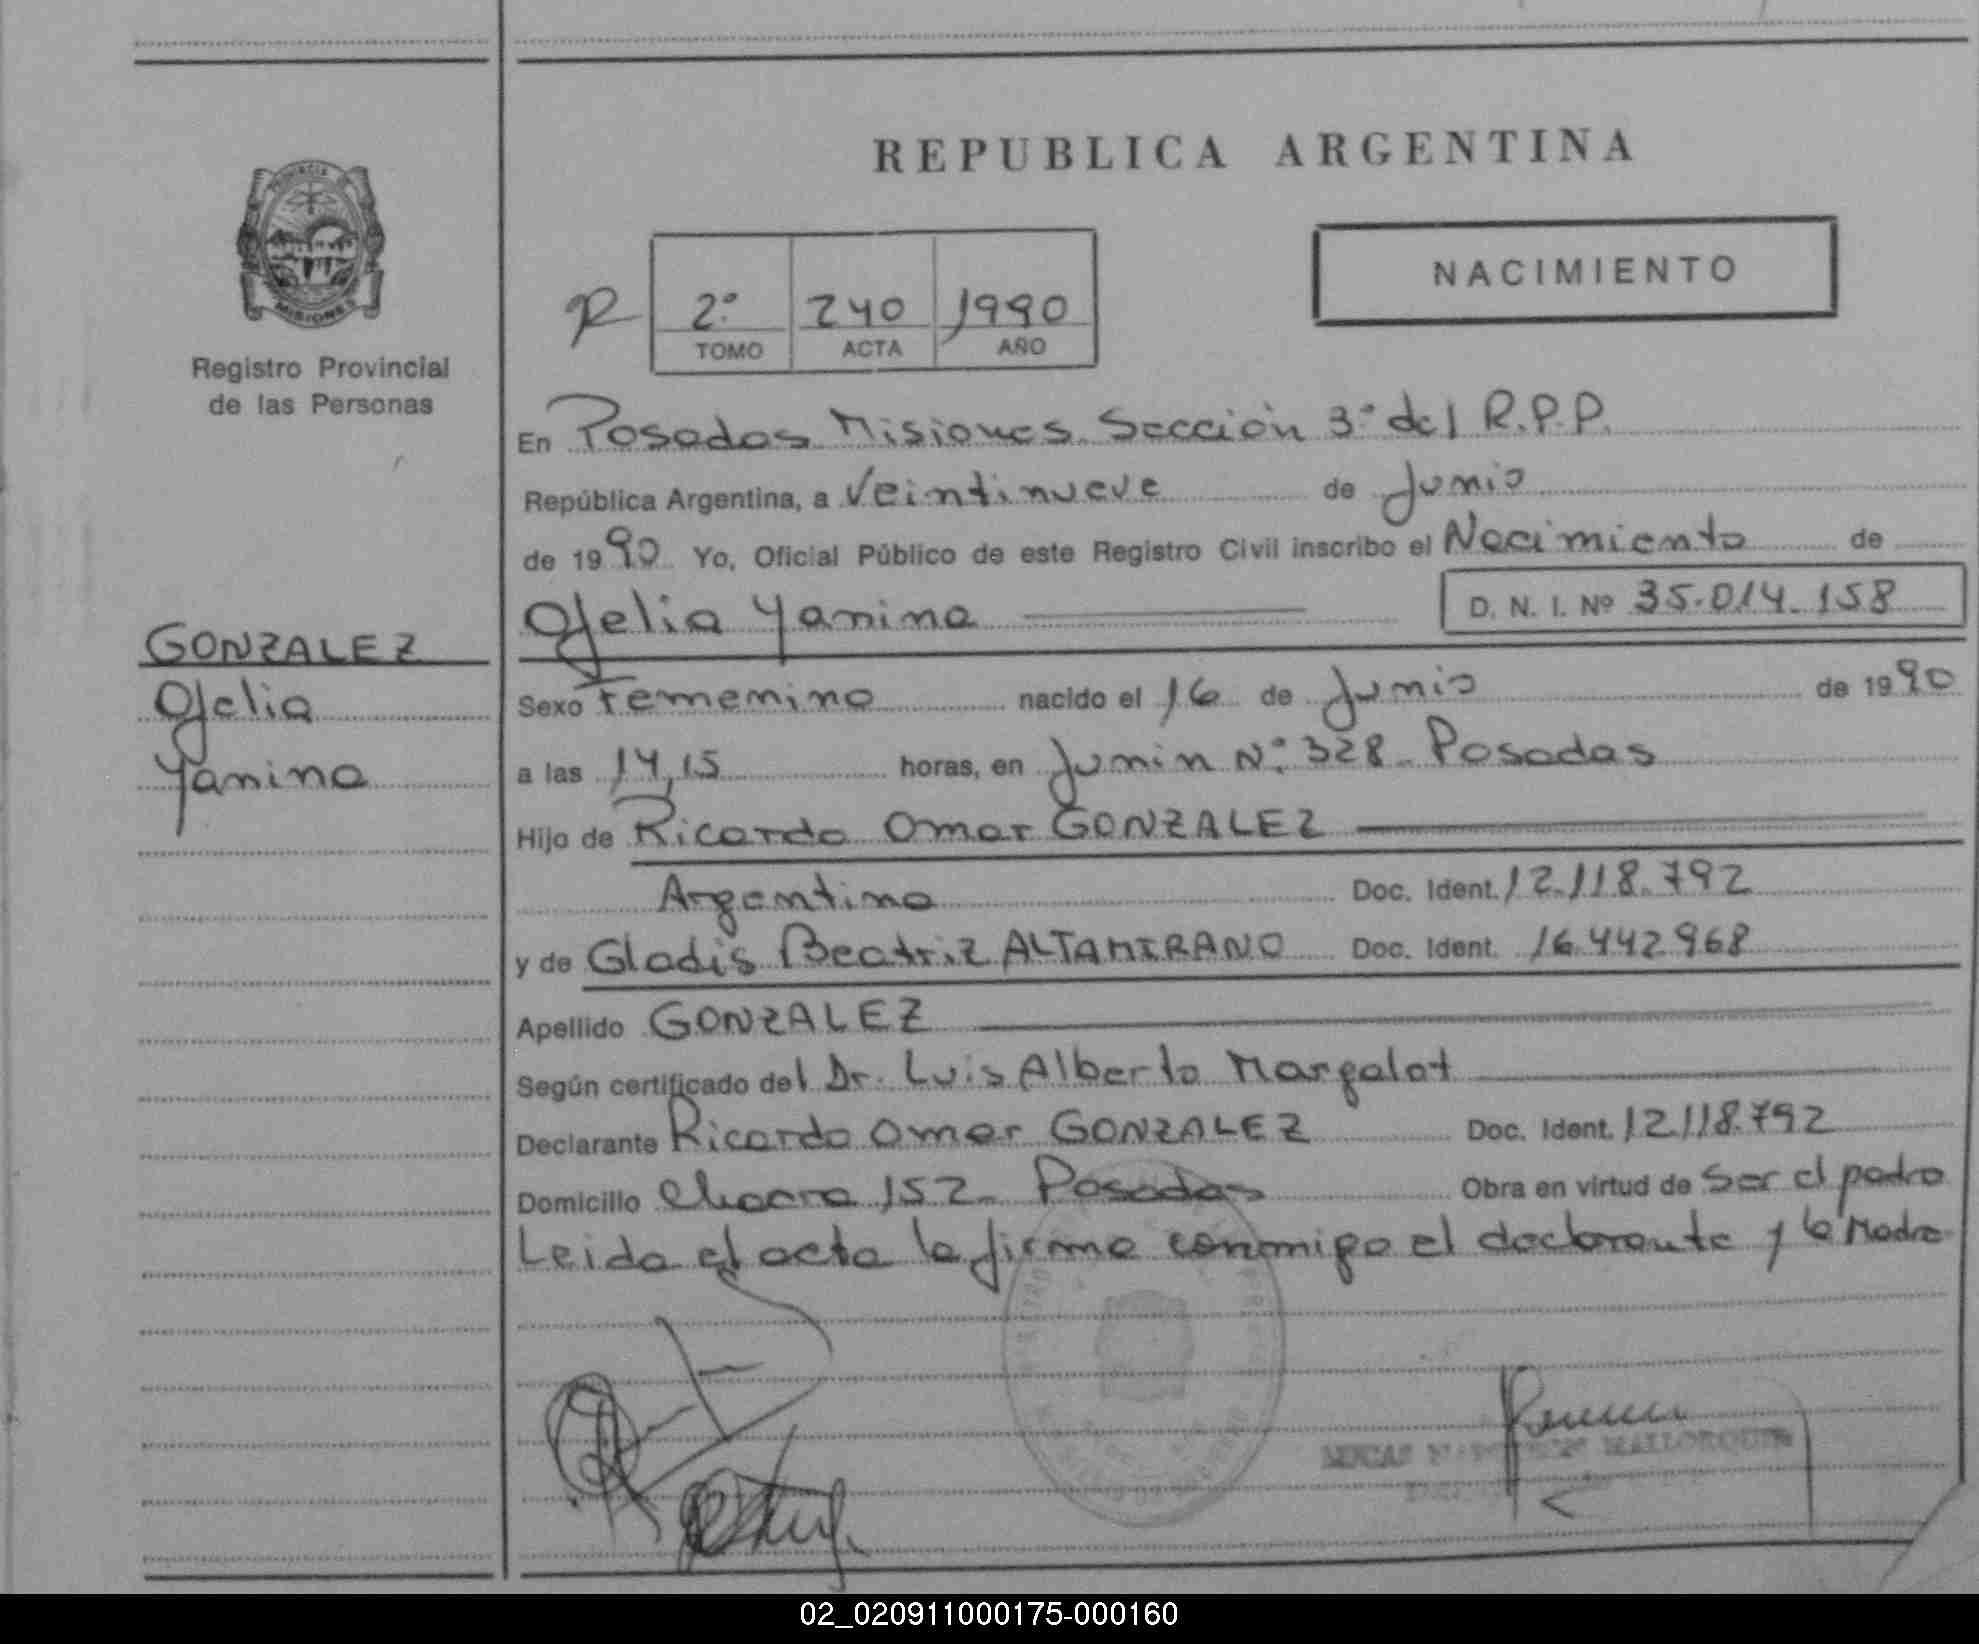 REPUBLICA ARGENTINA
PROVINCIA DE
MISIONES
Registro Provincial
de las Personas
NACIMIENTO
R 2º 240 1990
TOMO ACTA AÑO
En Posadas Misiones Sección 3º del R.P.P.
República Argentina, a Veintinueve de Junio
de 1990 Yo, Oficial Público de este Registro Civil inscribo el Nacimiento de
Ofelia Yanina D. N. I. Nº 35.014.158
GONZALEZ
Ofelia
Yanina
Sexo Femenino nacido el 16 de Junio de 1990
a las 14,15 horas, en Junin Nº 328 Posadas
Hijo de Ricardo Omar GONZALEZ
Argentino Doc. Ident. 12.118.792
y de Gladis Beatriz ALTAMIRANO Doc. Ident. 16.442.968
Apellido GONZALEZ
Según certificado del Dr. Luis Alberto Margalot
Declarante Ricardo Omar GONZALEZ Doc. Ident. 12.118.792
Domicilio Chacra 152 Posadas Obra en virtud de ser el padre
Leida el acta la firma conmigo el declarante y la Madre
MALLORQUIN
02_020911000175-000160